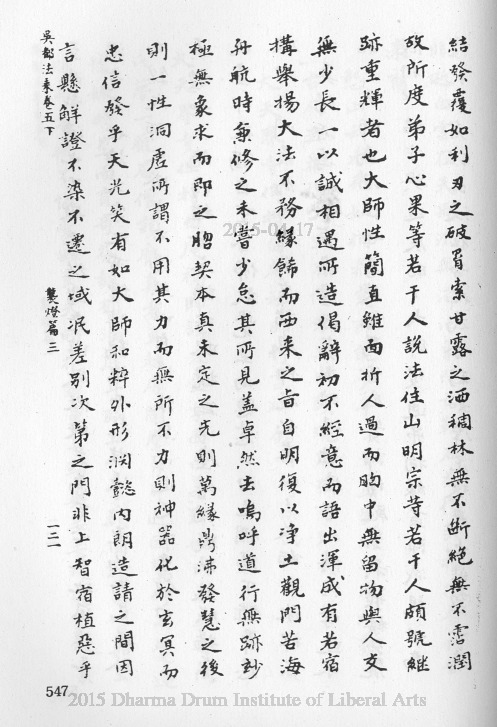 結發覆如利刃之破罥索甘露之洒稠林無不斷絕無不霑潤
故所度弟子心果等若干人說法住山明宗等若干人頗號継
跡重輝者也大師性簡直雖面折人過而胸中無留物與人交
無少長一以誠相遇所造偈辭初不經意而語出渾成有若宿
搆舉揚大法不務緣餙而西来之旨自明復以淨土觀門苦海
舟航時兼修之未嘗少怠其所見盖卓然去嗚呼道行無跡妙
極無象求而即之脗契本真未定之先則萬緣鼎沸發慧之後
則一性洞虛所謂不用其力而無所不力則神器化於玄冥而
忠信發乎天光矣有如大師和粹外形渊懿內朗造請之間因
言懸解證不染不遷之域泯差別次第之門非上智宿植惡乎
吳都法乘卷五下
龔燈篇三
一二一
547
2015-04-17
2015 Dharma Drum Institute of Liberal Arts